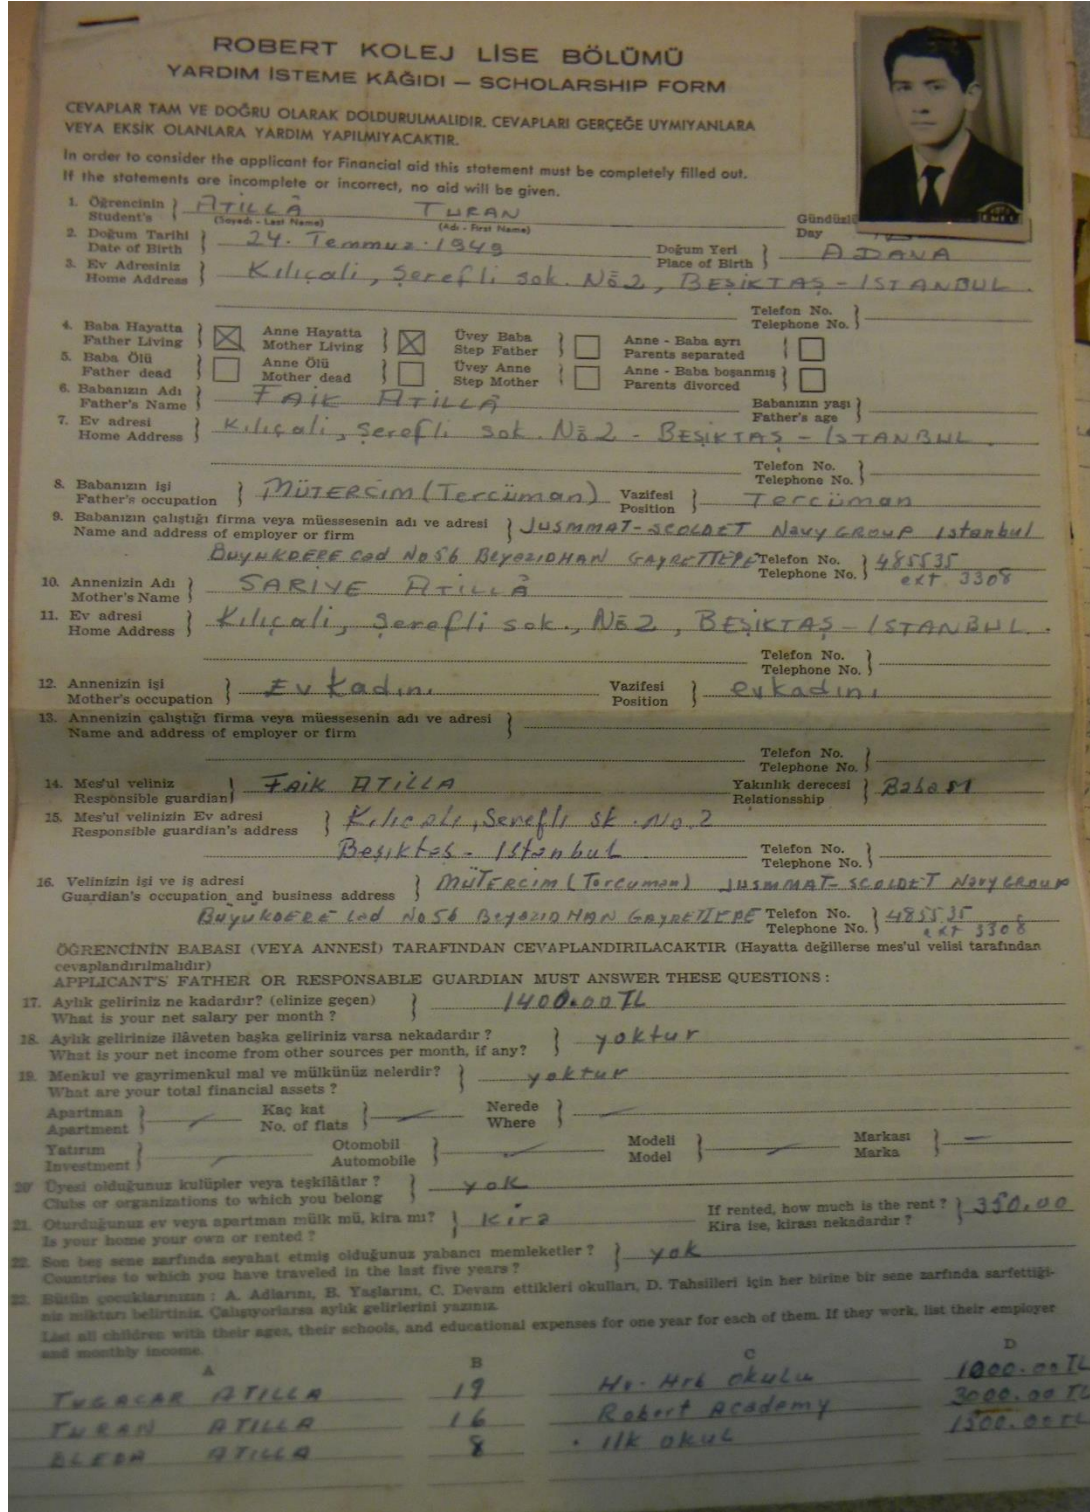 ROBERT KOLEJ LİSE BÖLÜMÜ
YARDIM İSTEME KÂĞIDI — SCHOLARSHIP FORM
CEVAPLAR TAM VE DOĞRU OLARAK DOLDURULMALIDIR. CEVAPLARI GERÇEĞE UYMIYANLARA
VEYA EKSİK OLANLARA YARDIM YAPILMIYACAKTIR.
In order to consider the applicant for Financial aid this statement must be completely filled out.
If the statements are incomplete or incorrect, no aid will be given.
1. Öğrencinin Student's } ATİLLÂ TURAN
(Soyadı - Last Name) (Adı - First Name) Gündüzlü Day
2. Doğum Tarihi Date of Birth } 24. Temmuz. 1949 Doğum Yeri Place of Birth } ADANA
3. Ev Adresiniz Home Address } Kılıçali, Şerefli sok. No 2, BEŞİKTAŞ - İSTANBUL.
Telefon No. Telephone No. }
4. Baba Hayatta Father Living } Anne Hayatta Mother Living } Üvey Baba Step Father } Anne - Baba ayrı Parents separated }
5. Baba Ölü Father dead } Anne Ölü Mother dead } Üvey Anne Step Mother } Anne - Baba boşanmış Parents divorced }
6. Babanızın Adı Father's Name } FAİK ATİLLÂ Babanızın yaşı Father's age }
7. Ev adresi Home Address } Kılıçali, Şerefli sok. No 2 - BEŞİKTAŞ - İSTANBUL.
Telefon No. Telephone No. }
8. Babanızın işi Father's occupation } MÜTERCİM (Tercüman) Vazifesi Position } Tercüman
9. Babanızın çalıştığı firma veya müessesenin adı ve adresi Name and address of employer or firm } JUSMMAT-SCOLDET Navy GROUP Istanbul
BÜYÜKDERE Cad No 56 BEYAZIDHAN GAYRETTEPE Telefon No. Telephone No. } 485535
ext. 3308
10. Annenizin Adı Mother's Name } SARİYE ATİLLÂ
11. Ev adresi Home Address } Kılıçali, Şerefli sok., No 2, BEŞİKTAŞ - İSTANBUL.
Telefon No. Telephone No. }
12. Annenizin işi Mother's occupation } Ev kadını Vazifesi Position } ev kadını
13. Annenizin çalıştığı firma veya müessesenin adı ve adresi Name and address of employer or firm }
Telefon No. Telephone No. }
14. Mes'ul veliniz Responsible guardian } FAİK ATİLLA Yakınlık derecesi Relationsship } Babası
15. Mes'ul velinizin Ev adresi Responsible guardian's address } Kılıcali, Şerefli sk. No. 2
Beşiktaş - Istanbul Telefon No. Telephone No. }
16. Velinizin işi ve iş adresi Guardian's occupation and business address } MÜTERCİM (Tercuman) JUSMMAT-SCOLDET Navy GROUP
BUYUKDERE Cad No 56 BEYAZIDHAN GAYRETTEPE Telefon No. Telephone No. } 485535
ext 3308
ÖĞRENCİNİN BABASI (VEYA ANNESİ) TARAFINDAN CEVAPLANDIRILACAKTIR (Hayatta değillerse mes'ul velisi tarafından
cevaplandırılmalıdır)
APPLICANT'S FATHER OR RESPONSABLE GUARDIAN MUST ANSWER THESE QUESTIONS :
17. Aylık geliriniz ne kadardır? (elinize geçen) What is your net salary per month ? } 1400.00 TL
18. Aylık gelirinize ilâveten başka geliriniz varsa nekadardır ? What is your net income from other sources per month, if any? } yoktur
19. Menkul ve gayrimenkul mal ve mülkünüz nelerdir? What are your total financial assets ? } yoktur
Apartman Apartment } Kaç kat No. of flats } Nerede Where }
Yatırım Investment } Otomobil Automobile } Modeli Model } Markası Marka } —
20 Üyesi olduğunuz kulüpler veya teşkilâtlar ? Clubs or organizations to which you belong } yok
21. Oturduğunuz ev veya apartman mülk mü, kira mı? Is your home your own or rented ? } Kira If rented, how much is the rent ? Kira ise, kirası nekadardır ? } 350.00
22. Son beş sene zarfında seyahat etmiş olduğunuz yabancı memleketler ? Countries to which you have traveled in the last five years ? } yok
22. Bütün çocuklarınızın : A. Adlarını, B. Yaşlarını, C. Devam ettikleri okulları, D. Tahsilleri için her birine bir sene zarfında sarfettiği-
niz miktarı belirtiniz. Çalışıyorlarsa aylık gelirlerini yazınız.
List all children with their ages, their schools, and educational expenses for one year for each of them. If they work, list their employer
and monthly income.
A B C D
TUGACAR ATILLA 19 Hv. Hrb okulu 1000.00 TL
TURAN ATILLA 16 Robert Academy 3000.00 TL
BLEDA ATILLA 8 ilk okul 1500.00 TL